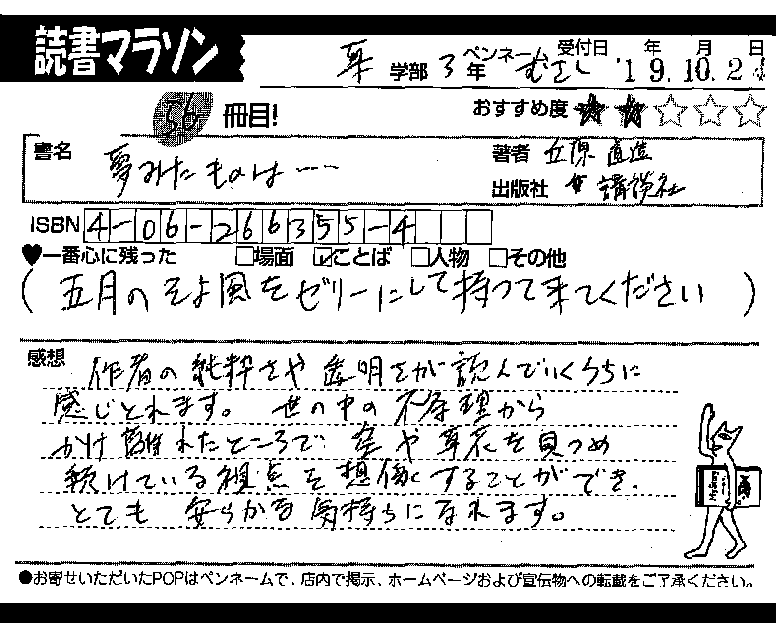 読書マラソン
薬 学部 3年 ペンネーム むさし 受付日 年 月 日 '19.10.24
56 冊目!
おすすめ度 ★★☆☆☆
書名 夢みたものは……
著者 立原 道造
出版社 講談社
ISBN 4-06-266355-4
♥一番心に残った □場面 ☑ことば □人物 □その他
( 五月のそよ風をゼリーにして持って来てください )
感想 作者の純粋さや透明さが読んでいくうちに
感じとれます。世の中の不条理から
かけ離れたところで空や草花を見つめ
続けている視点を想像することができ、
とても安らかな気持ちになれます。
●お寄せいただいたPOPはペンネームで、店内で掲示、ホームページおよび宣伝物への転載をご了承ください。